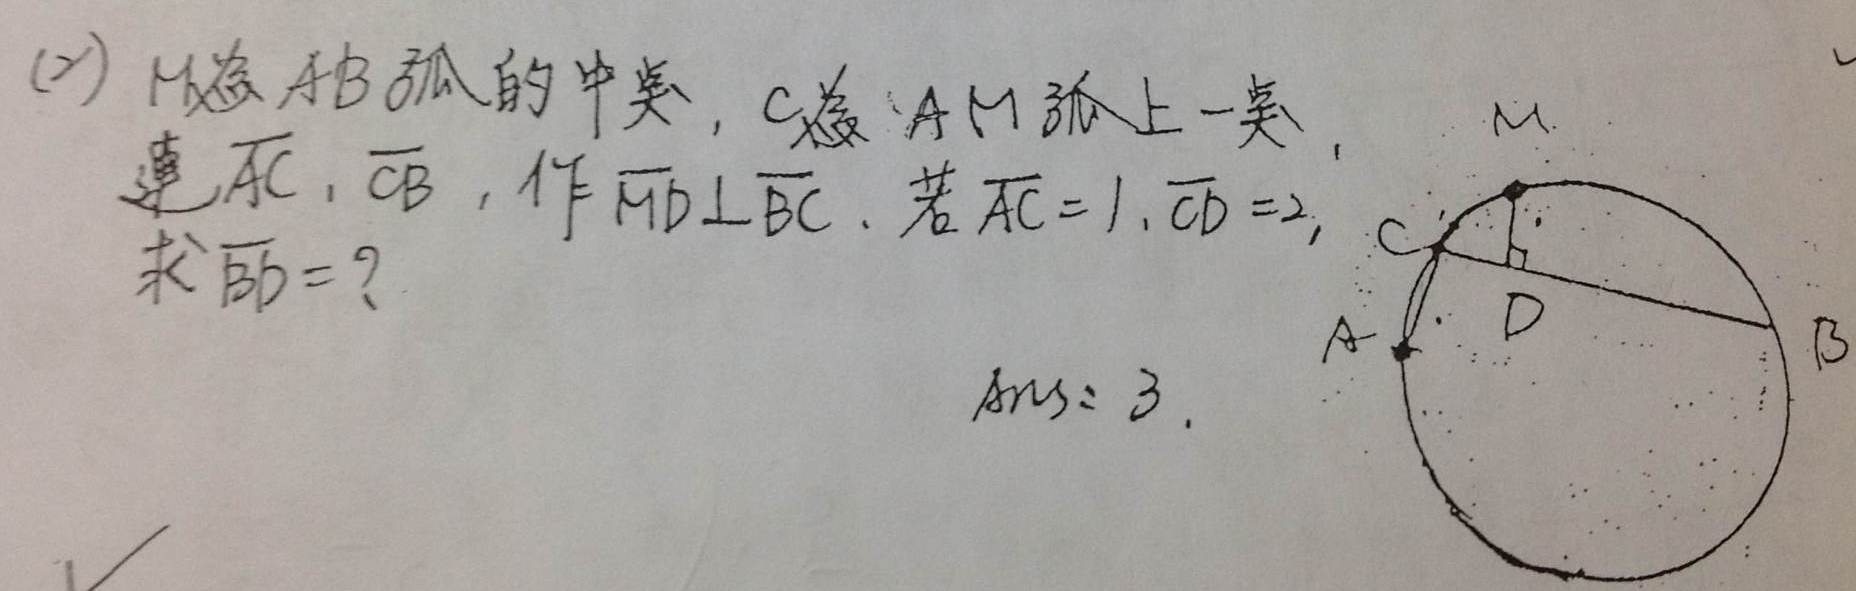 (2) M為AB弧的中點, C為AM弧上一點,
連AC、CB, 作MD⊥BC. 若AC=1、CD=2,
求BD=?
Ans: 3.
M
C
D
A
B